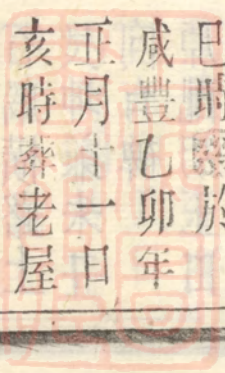 巳時歿於
咸豐乙卯年
正月十一日
亥時葬老屋